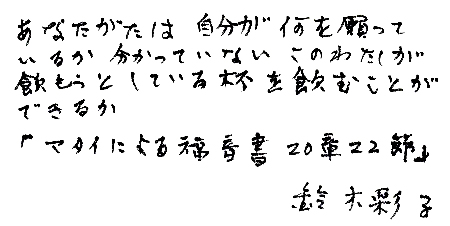 あなたがたは 自分が 何を願って
いるか 分かっていない このわたしが
飲もうとしている杯を飲むことが
できるか
「マタイによる福音書 20章22節」
鈴木彩子